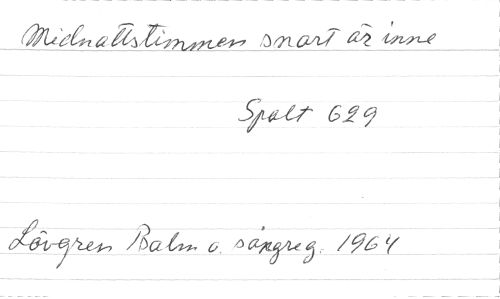 Midnattstimmen snart är inne
Spalt 629
Lövgren Psalm o. sångreg. 1964